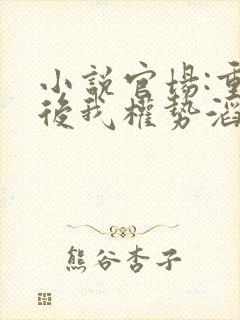 小說官場:重
後我權勢滔
熊谷杏子